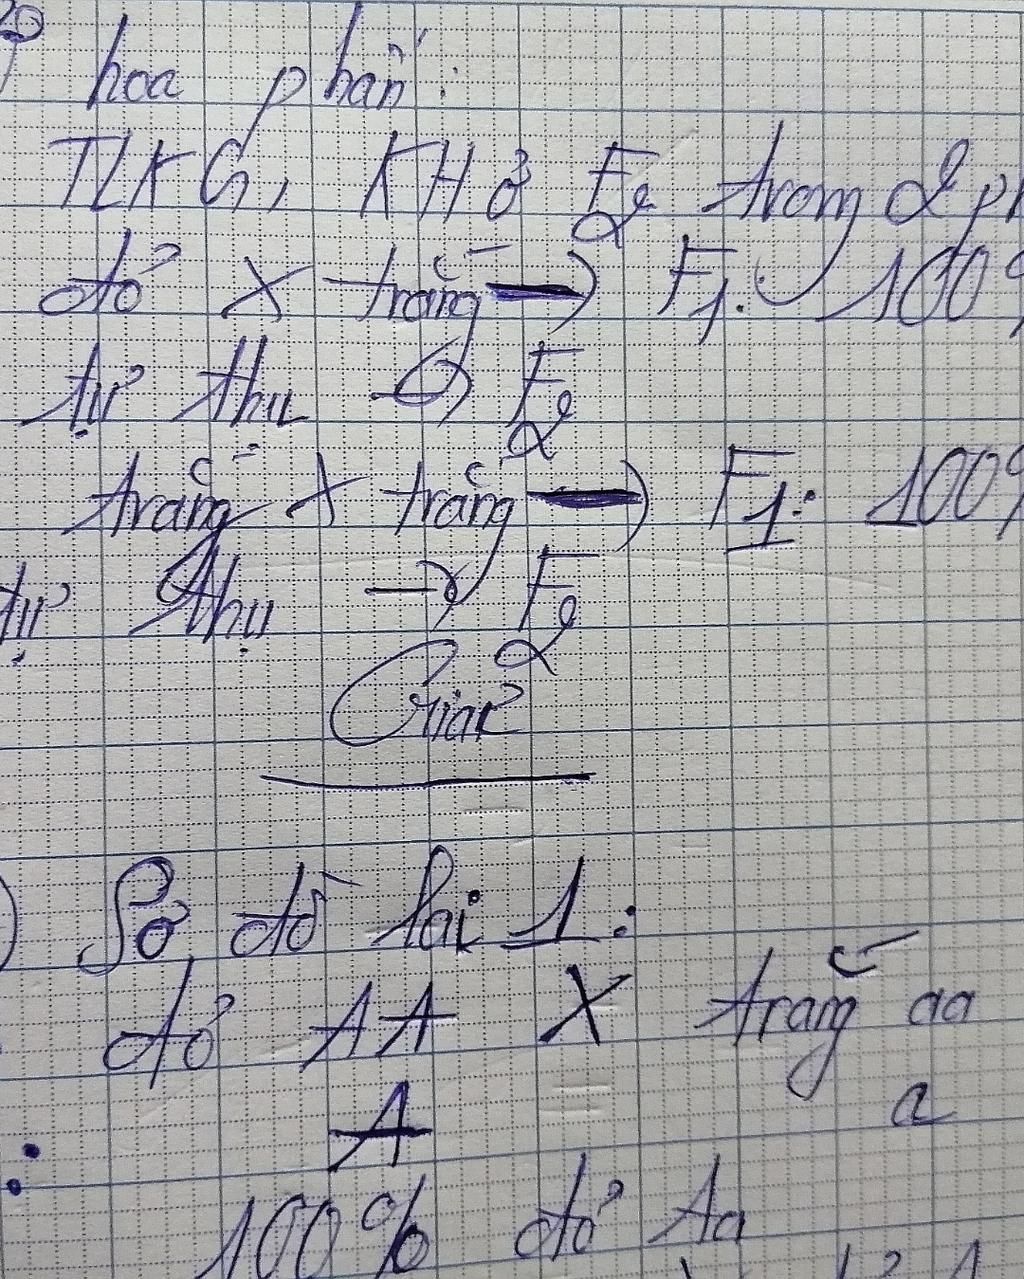 hoa phấn:
TLKG, KH ở F2 trong 2
đỏ X trắng → F1: 100%
tự thụ → F2
trắng X trắng → F1: 100%
tự thụ → F2
Giải
Sơ đồ lai 1:
đỏ AA X trắng aa
A a
100% đỏ Aa